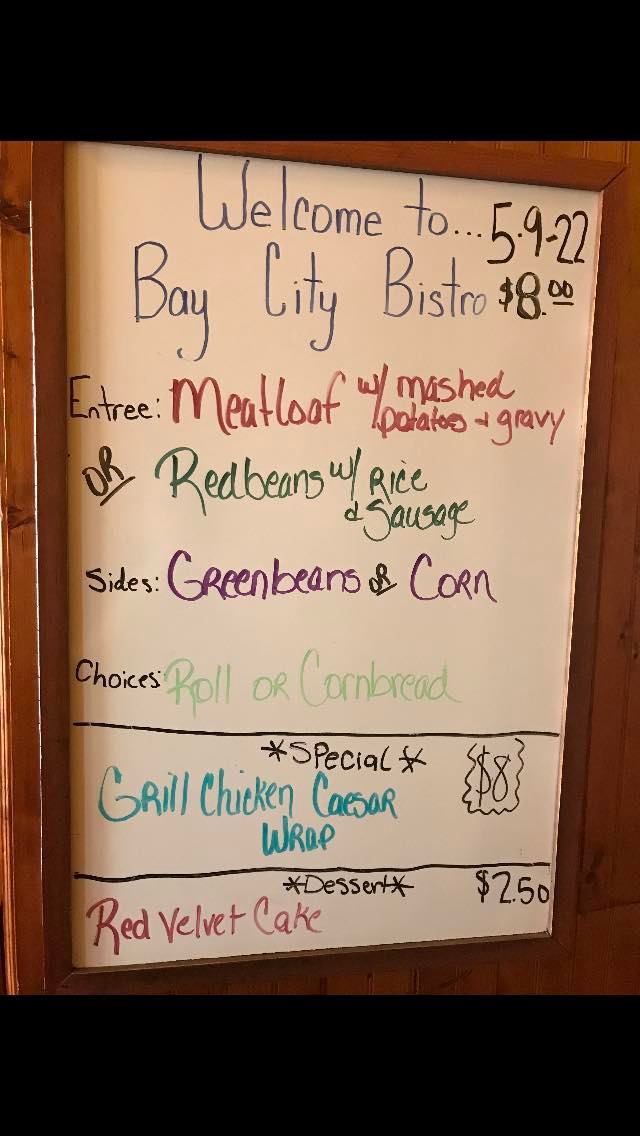 Welcome to... 5-9-22
Bay City Bistro $8.00
Entree: Meatloaf w/ mashed
potatoes & gravy
OR Redbeans w/ Rice
& Sausage
Sides: Greenbeans OR Corn
Choices: Roll OR Cornbread
*Special* $8
Grill Chicken Caesar
Wrap
*Dessert* $2.50
Red Velvet Cake